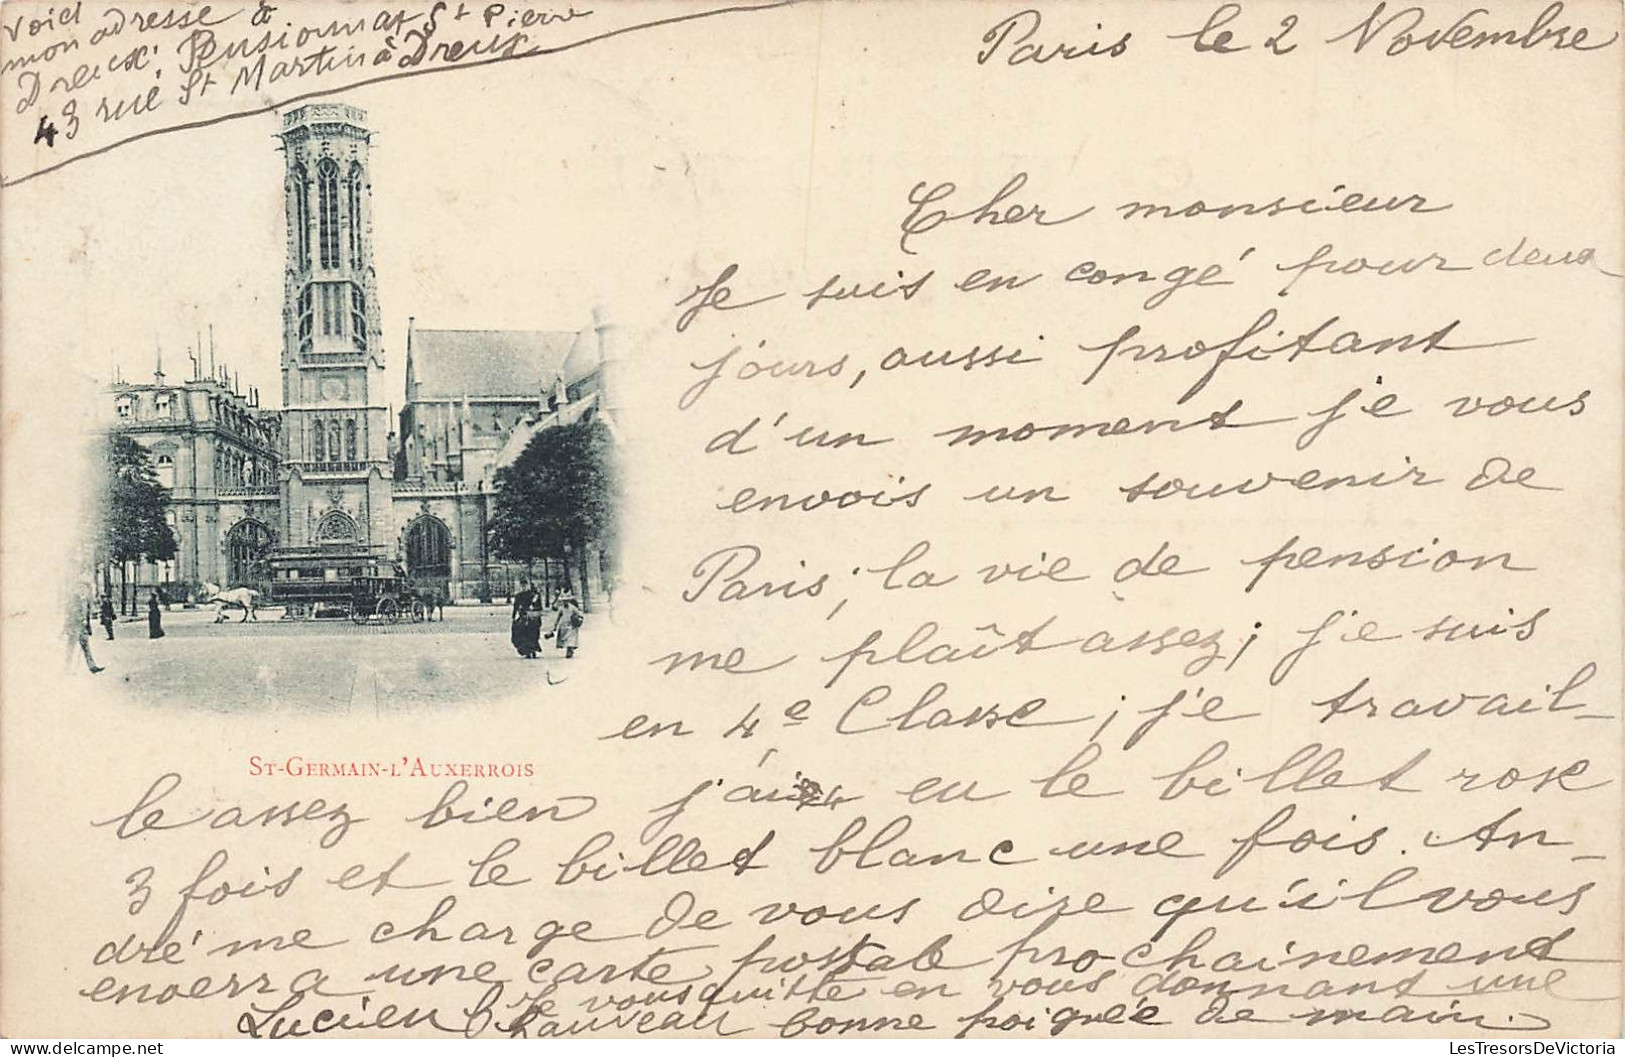 Voici
mon adresse à
Dreux: Pensionnat St Pierre
43 rue St Martin à Dreux
Paris le 2 Novembre
Cher monsieur
Je suis en congé pour deux
jours, aussi profitant
d'un moment je vous
envois un souvenir de
Paris; la vie de pension
me plaît assez; je suis
en 4e Classe; je travail-
le assez bien j'ai eu le billet rose
3 fois et le billet blanc une fois. An-
dré me charge de vous dire qu'il vous
enverra une carte postale prochainement
Je vous quitte en vous donnant une
Lucien Chauveau bonne poignée de main.
St-Germain-l'Auxerrois
LesTresorsDeVictoria